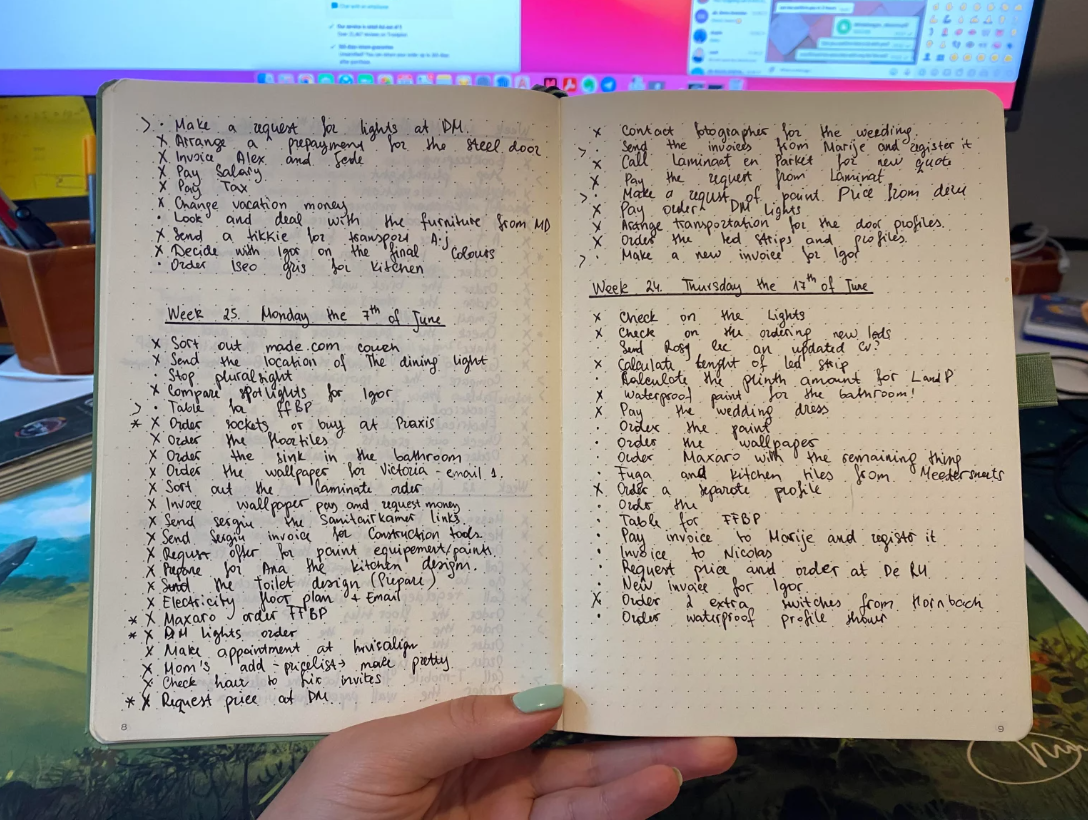 > · Make a request for lights at DM.
x Arrange a prepayment for the steel door
x Invoice Alex and
x Pay Salary
x Pay Tax
x Change vacation money
· Look and deal with the furniture from MD
x Send a tikkie for transport A:j
x Decide with Igor on the final Colours
· Order iseo gris for kitchen
Week 25. Monday the 7th of June
x Sort out made.com couch
x Send the location of The dining light
· Stop pluralsight
x Compare spotlights for Igor
> · Table for FFBP
* x Order sockets or buy at Praxis
x Order the floortiles
x Order the sink in the bathroom
x Order the wallpaper for Victoria - email 1.
x Sort out the laminate order
x Invoce wallpaper pay and request money
x Send sergiu the Sanitairkamer links
x Send Sergiu invoice for Construction tools.
x Requst offer for paint equipement/paints.
x Prepare for Ana the kitchen design.
x Send the Toilet design (Prepare)
x Electricity floor plan + Email
* x Maxaro order FFBP
* x DM lights order
x Make appointment at Invisalign
x Mom's add - pricelist → make pretty
x Check hair to hix invites
* x Request price at DM.
8
x Contact fotographer for the weeding.
> · Send the invoices from Marije and register it
x Call Laminaat en Parket for new quote
x Pay the request from Laminat
> · Make a requst of paint. Price from deru
x Pay order DM Lights
x Arange transportation for the door profiles.
x Order the led strips and profiles.
> · Make a new invoice for Igor
Week 24. Thursday the 17th of June
x Check on the Lights
x Check on the ordering new leds
· Send Rosy lec an updated cv?
x Calculate lenght of led strip
· Kalculate the plinth amount for L and P
x Waterproof paint for the bathroom!
x Pay the wedding dress
· Order the paint
· Order the wallpaper
· Order Maxaro with the remaining thing
· Fuga and kitchen tiles from Meedersmeets
x Order a separate profile
· Order the
· Table for FFBP
· Pay invoice to Marije and registr it
· Invoice to Nicolas
· Request price and order at De RU
· New invoice for Igor
x Order 2 extra switches from Hornbach
· Order waterproof profile shower
9